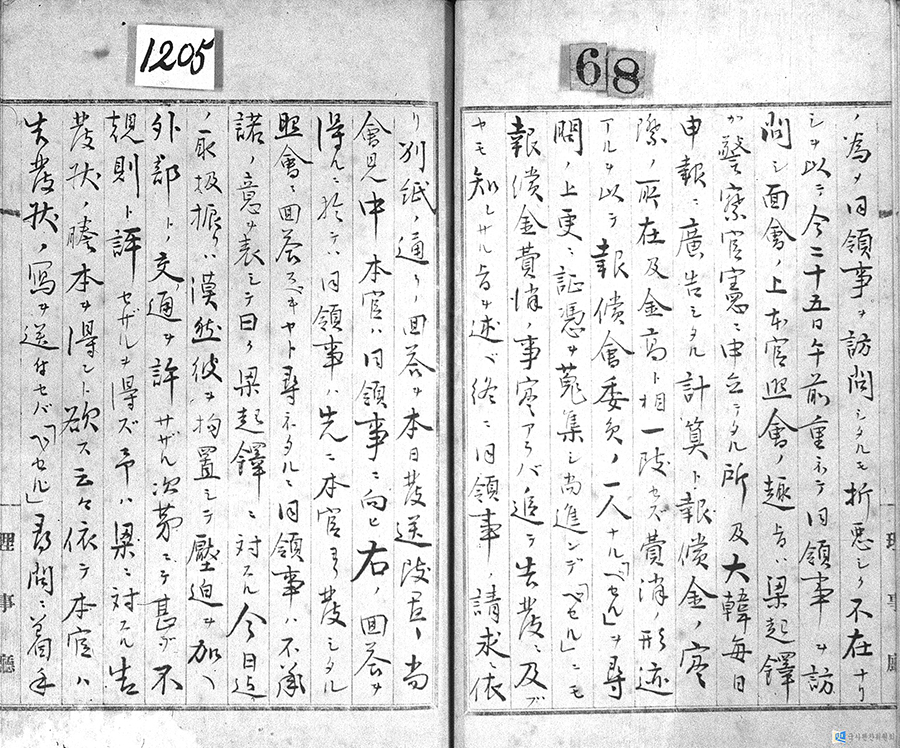 68
ノ為メ同領事ヲ訪問シタルモ折悪シク不在ナリ
シヲ以テ今二十五日午前重ネテ同領事ヲ訪
問シ面會ノ上本官照會ノ趣旨ハ梁起鐸
カ警察官憲ニ申立テタル所及大韓毎日
申報ニ廣告シタル計算ト報償金ノ実
際ノ所在及金高ト相一致セス費消ノ形迹
アルヲ以テ報償會委員ノ一人ナル「ベセル」ヲ尋
問ノ上更ニ証憑ヲ蒐集シ尚進ンデ「ベセル」ニモ
報償金費消ノ事実アラバ追テ告發ニ及ブ
ヤモ知レサル旨ヲ述ベ終ニ同領事ノ請求ニ依
1205
リ別紙ノ通リノ回答ヲ本日發送致置ク尚
會見中本官ハ同領事ニ向ヒ右ノ回答ヲ
得ルニ於テハ同領事ハ先ニ本官ヨリ發シタル
照會ニ回答スベキヤト尋ネタルニ同領事ハ不承
諾ノ意ヲ表シテ曰ク梁起鐸ニ対スル今日迠
ノ取扱振リハ漠然彼ヲ拘置シテ壓迫ヲ加ヘ
外部トノ交通ヲ許サザル次第ニテ甚ダ不
規則ト評セザルヲ得ズ予ハ梁ニ対スル告
發状ノ謄本ヲ得ント欲ス云々依テ本官ハ
告發状ノ寫ヲ送付セバ「ベセル」尋問ニ着手
理事廳
理事廳
국사편찬위원회